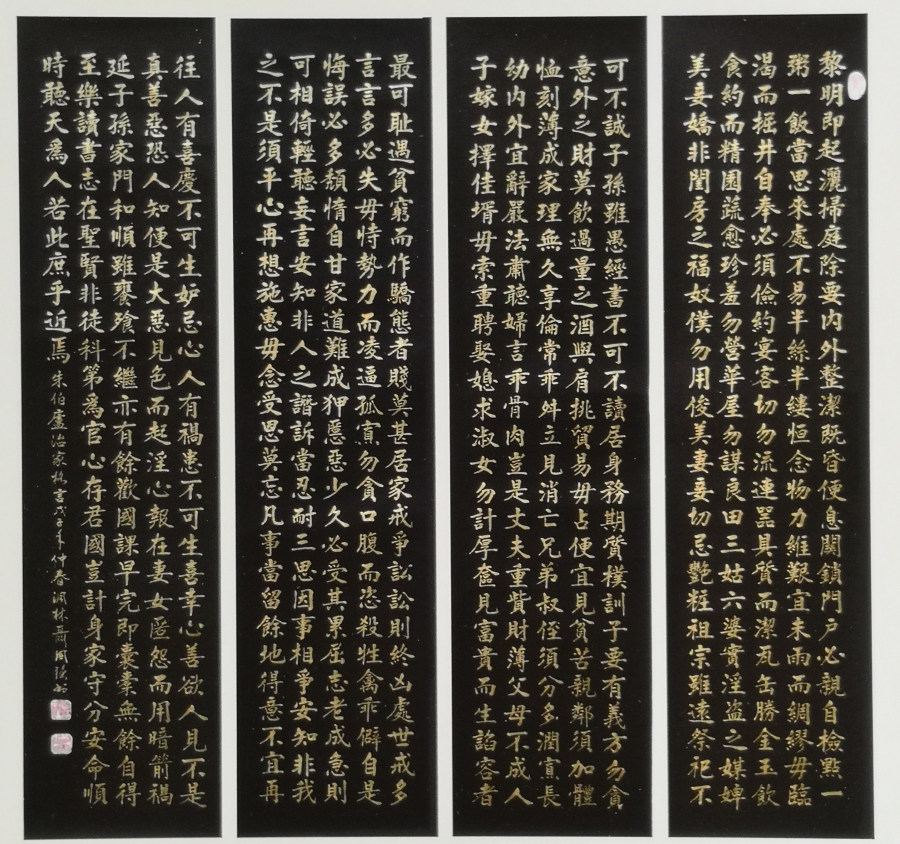 黎明即起灑掃庭除要内外整潔既昏便息關鎖門户必親自檢點一
粥一飯當思來處不易半絲半縷恒念物力維艱宜未雨而綢繆毋臨
渴而掘井自奉必須儉約宴客切勿流連器具質而潔瓦缶勝金玉飲
食約而精園蔬愈珍羞勿營華屋勿謀良田三姑六婆實淫盗之媒婢
美妾嬌非閨房之福奴僕勿用俊美妻妾切忌艷粧祖宗雖遠祭祀不
可不誠子孫雖愚經書不可不讀居身務期質樸訓子要有義方勿貪
意外之財莫飲過量之酒與肩挑貿易毋占便宜見貧苦親鄰須加體
恤刻薄成家理無久享倫常乖舛立見消亡兄弟叔侄須分多潤寡長
幼内外宜辭嚴法肅聽婦言乖骨肉豈是丈夫重貲財薄父母不成人
子嫁女擇佳壻毋索重聘娶媳求淑女勿計厚奩見富貴而生諂容者
最可耻遇貧窮而作驕態者賤莫甚居家戒爭訟訟則終凶處世戒多
言言多必失毋恃勢力而凌逼孤寡勿貪口腹而恣殺牲禽乖僻自是
悔誤必多頹惰自甘家道難成狎惡惡少久必受其累屈志老成急則
可相倚輕聽妄言安知非人之譖訴當忍耐三思因事相爭安知非我
之不是須平心再想施惠毋念受恩莫忘凡事當留餘地得意不宜再
往人有喜慶不可生妒忌心人有禍患不可生喜幸心善欲人見不是
真善惡恐人知便是大惡見色而起淫心報在妻女匿怨而用暗箭禍
延子孫家門和順雖饔飧不繼亦有餘歡國課早完即囊橐無餘自得
至樂讀書志在聖賢非徒科第爲官心存君國豈計身家守分安命順
時聽天爲人若此庶乎近焉 朱伯廬治家格言戊子年仲春